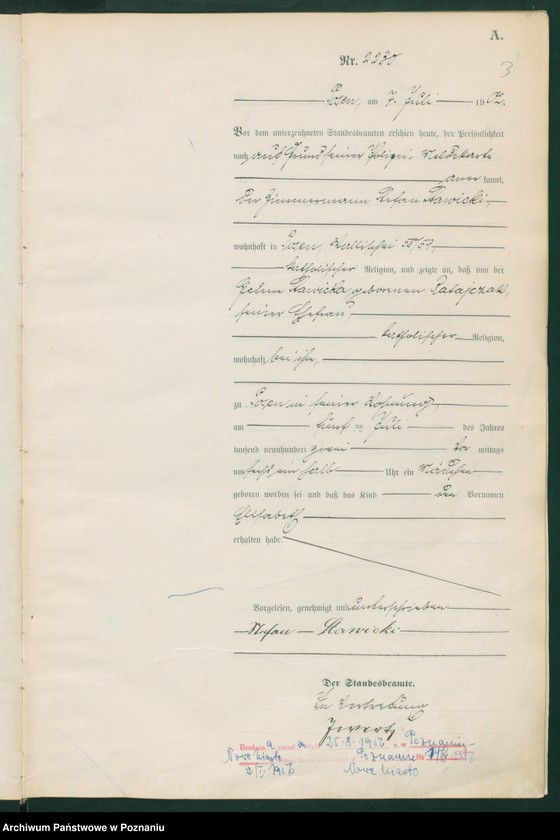 A.
Nr. 2230
3
Posen, am 7. Juli 1902.
Vor dem unterzeichneten Standesbeamten erschien heute, der Persönlichkeit
nach auf Grund seiner Polizei-Meldekarte
aner kannt,
der Zimmermann Stefan Stawicki,
wohnhaft in Posen, Wallischei 58/59,
katholischer Religion, und zeigte an, daß von der
Helene Stawicka geborenen Ratajczak,
seiner Ehefrau
katholischer Religion,
wohnhaft bei ihm,
zu Posen in seiner Wohnung
am fünften Juli des Jahres
tausend neunhundert zwei Vor mittags
um sechs ein halb Uhr ein Mädchen
geboren worden sei und daß das Kind den Vornamen
Elisabeth
erhalten habe.
Vorgelesen, genehmigt und unterschrieben
Stefan Stawicki
Der Standesbeamte.
In Vertretung
25.8.1956 Poznaniu
Nowe Miasto Poznaniu
1956 Nowe Miasto
Archiwum Państwowe w Poznaniu